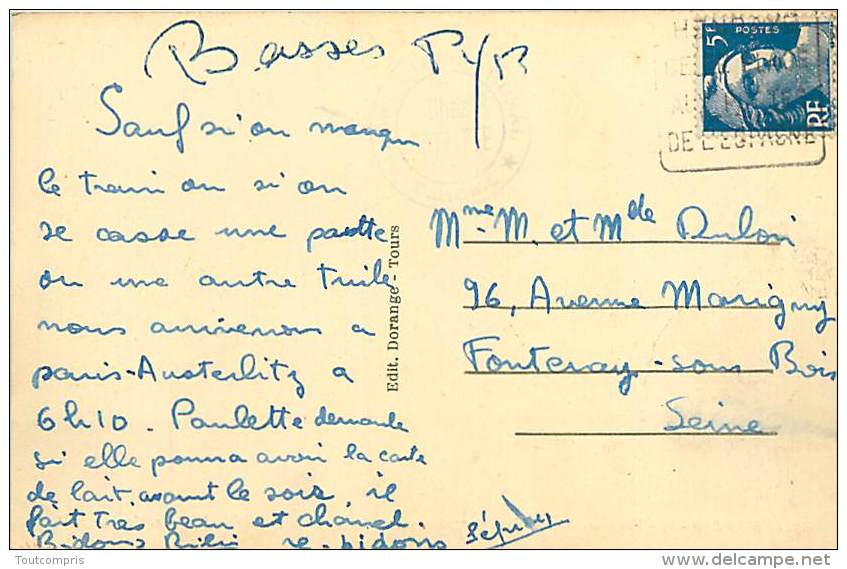 Basses Pyr
Sauf si on manque
le train ou si on
se casse une patte
ou une autre tuile
nous arriverons a
paris-Austerlitz a
6h10. Paulette demande
si elle pourra avoir la carte
de lait. avant le soir, il
fait très beau et chaud.
Bidons Bibi re-bidons
Edit. Dorange - Tours
5F POSTES
RF
DE L'ESPAGNE
Mme M. et Mlle
96, Avenue Marigny
Fontenay-sous Bois
Seine
Toutcompris
www.delcampe.net